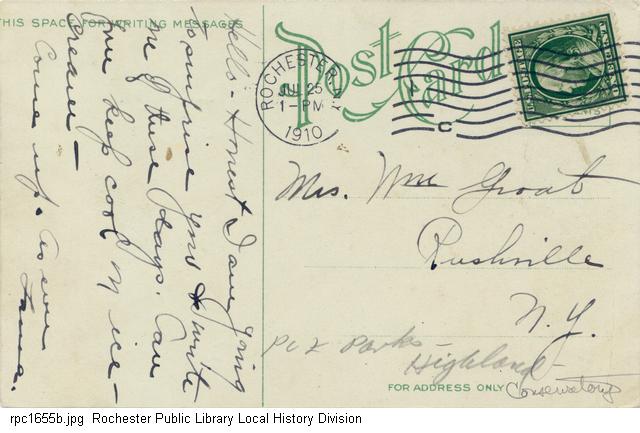 THIS SPACE FOR WRITING MESSAGES
Hello - Honest I am going
to surprise you & write
one of these days. Can
you keep cool on ice-
cream -
Come up. As ever
Post Card
ROCHESTER, N.Y.
JUL 25
1-PM
1910
C
Mrs. Wm Groat
Rushville
N.Y.
Pcl Parks-
Highland-
Conservatory
FOR ADDRESS ONLY
rpc1655b.jpg Rochester Public Library Local History Division